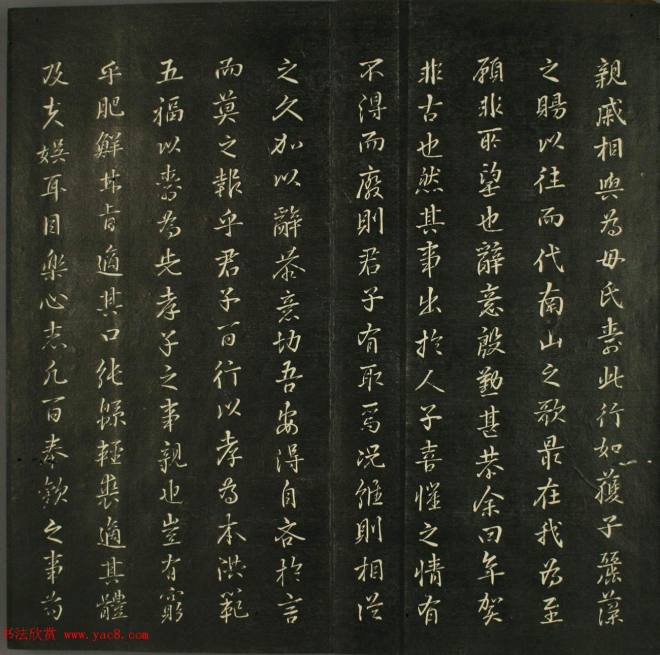 親戚相與為母氏壽此行如獲子麗藻
之賜以往而代南山之歌最在我為至
願非所望也辭意殷勤甚恭余曰年賀
非古也然其事出於人子喜懼之情有
不得而廢則君子有取焉况維則相從
之久加以辭恭意切吾安得自吝於言
而莫之報乎君子百行以孝為本洪範
五福以壽為先孝子之事親也豈有窮
乎肥鮮甘旨適其口純綿輕裘適其體
及夫娛耳目樂心志凡百奉歡之事為
书法欣赏 www.yac8.com